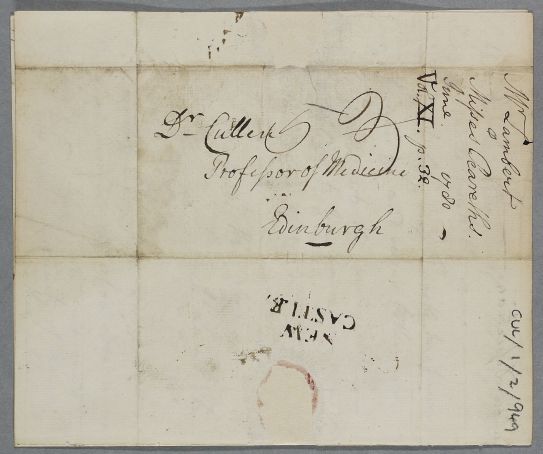 Dr Cullen
Professor of Medicine
Edinburgh
NEW
CASTLE.
Mr Lambert
Misses Ccareths.
June 1780
Vol. XI. p. 32.
CUL/1/2/949